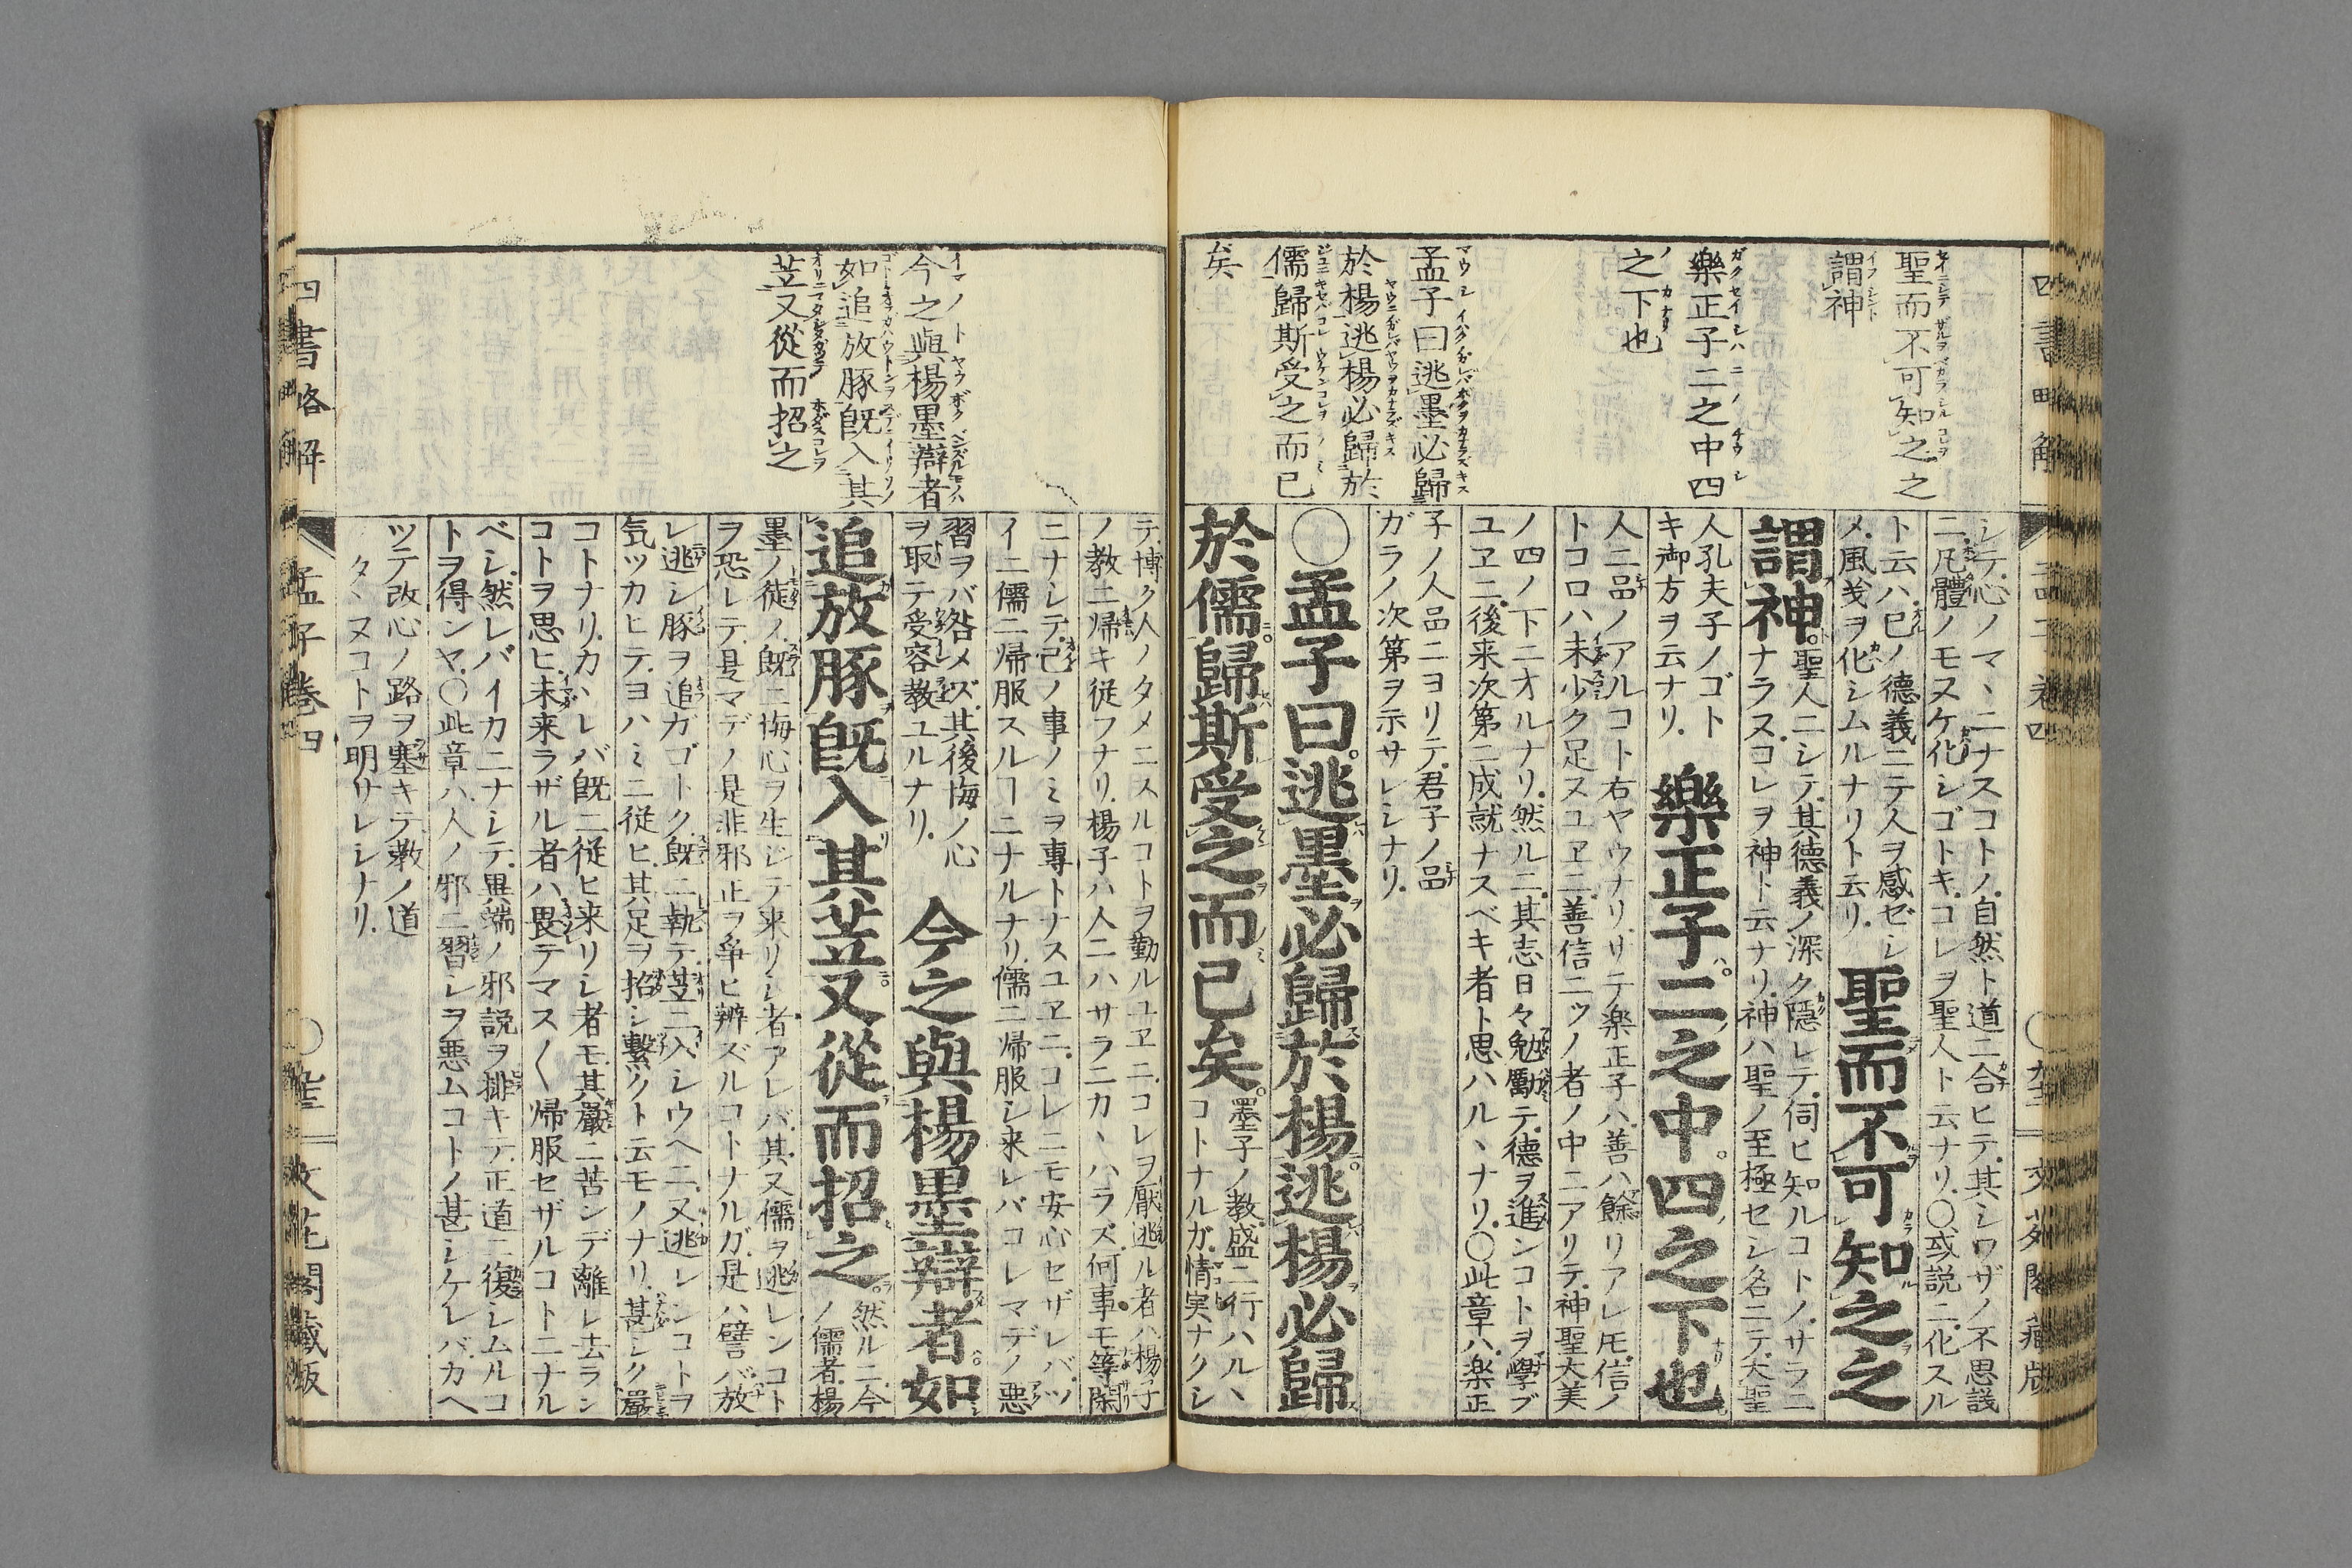 聖而不可知之之
謂神
樂正子二之中四
之下也
孟子曰逃墨必歸
於楊逃楊必歸於
儒歸斯受之而已
矣
シテ心ノマヽニナスコトノ自然ト道ニ合ヒテ其シワザノ不思議
ニ凡體ノモヌケ化シゴトキコレヲ聖人ト云ナリ〇或説ニ化スル
ト云ハ已ノ德義ニテ人ヲ感ゼシ
メ風㒵ヲ化シムルナリト云リ
聖而不可知之之
謂神
聖人ニシテ其德義ノ深ク隱レテ伺ヒ知ルコトノサラニ
ナラヌコレヲ神ト云ナリ神ハ聖ノ至極セシ名ニテ大聖
人孔夫子ノゴト
キ御方ヲ云ナリ
樂正子二之中四之下也
人ニ品ノアルコト右ヤウナリサテ楽正子ハ善ハ餘リアレ𪜈信ノ
トコロハ未少ク足ヌユヱニ善信二ツノ者ノ中ニアリテ神聖大美
ノ四ノ下ニオルナリ然ルニ其志日々勉勵テ德ヲ進ンコトヲ學ブ
ユヱニ後来次第ニ成就ナスベキ者ト思ハルヽナリ〇此章ハ楽正
子ノ人品ニヨリテ君子ノ品
ガラノ次第ヲ示サレシナリ
〇孟子曰逃墨必歸於楊逃楊必歸
於儒歸斯受之而已矣
墨子ノ教盛ニ行ハルヽ
コトナルガ情実ナクシ
四書略解
孟子卷四
文苑閣藏版
今之與楊墨辯者
如追放豚既入其
苙又從而招之
テ博ク人ノタメニスルコトヲ勤ルユヱニコレヲ厭逃ル者ハ楊子
ノ教ニ帰キ従フナリ楊子ハ人ニハサラニカヽハラズ何事モ等閑
ニナシテ己ノ事ノミヲ專トナスユヱニコレニモ安心セザレバツ
イニ儒ニ帰服スルヿニナルナリ儒ニ帰服シ来レバコレマデノ悪
習ヲバ咎メズ其後悔ノ心
ヲ取テ受容教ユルナリ
今之與楊墨辯者如
追放豚既入其苙又從而招之
然ルニ今
ノ儒者楊
墨ノ徒ノ既ニ悔心ヲ生ジテ来リシ者アレバ其又儒ヲ逃レンコト
ヲ恐レテ是マデノ是非邪正ヲ争ヒ辨ズルコトナルガ是ハ譬バ放
レ逃シ豚ヲ追ガゴトク既ニ執テ苙ニ入シウヘニ又逃レンコトヲ
気ツカヒテヨハミニ従ヒ其足ヲ招シ繫クト云モノナリ甚シク嚴
コトナリカヽレバ既ニ従ヒ来リシ者モ其嚴ニ苦ンデ離レ去ラシ
コトヲ思ヒ未来ラザル者ハ畏テマス〱帰服セザルコトニナル
ベシ然レバイカニナシテ異端ノ邪説ヲ排キテ正道ニ復シムルコ
トヲ得ンヤ〇此章ハ人ノ邪ニ習シヲ悪ムコトノ甚シケレバカヘ
ツテ改心ノ路ヲ塞キテ教ノ道
タヽヌコトヲ明サレシナリ
四書略解
孟子卷四
文苑閣藏版